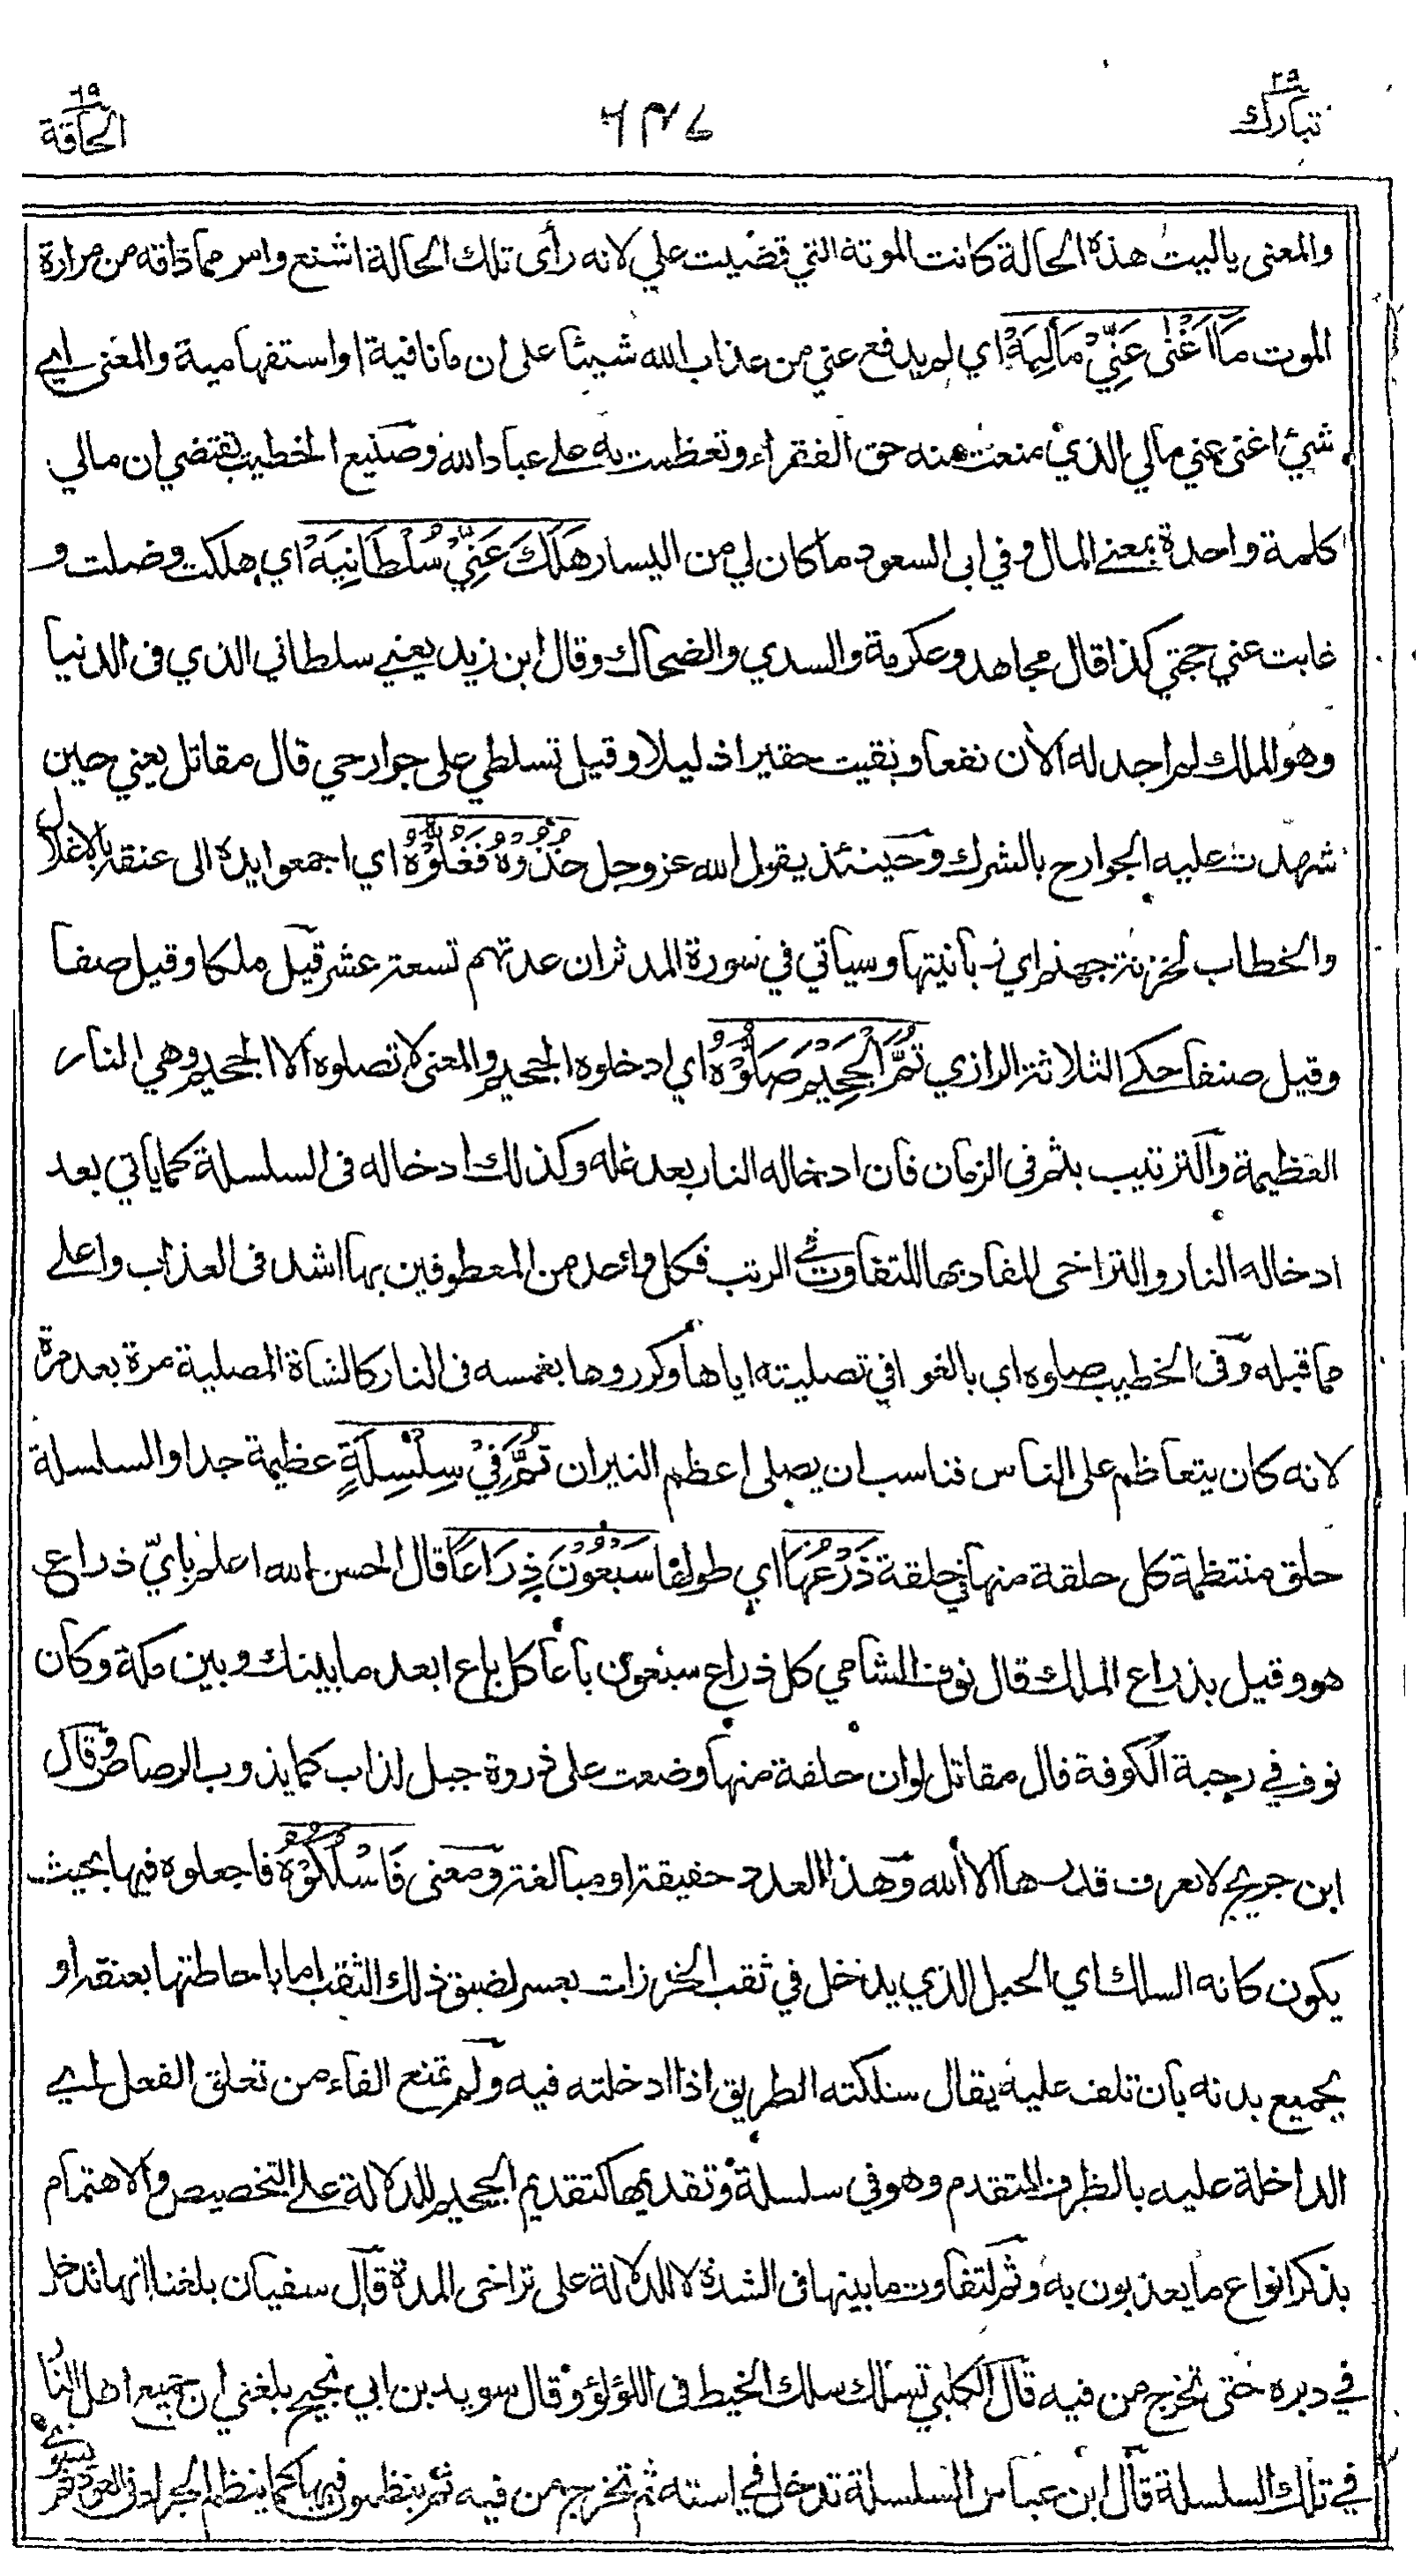 تبارك ٢٩
٦٣٧
الحاقة ٦٩
والمعنى ياليت هذه الحالة كانت الموتة التي قضيت علي لانه رأى تلك الحالة اشنع وامر مما ذاقه من مرارة
الموت مَا اَغْنٰى عَنِّيْ مَالِيَهْ اي لم يدفع عني من عذاب الله شيئا على ان ما نافية او استفهامية والمعنى اي
شيء اغنى عني مالي الذي منعت منه حق الفقراء وتعظمت به على عباد الله وصنيع الخطيب يقتضي ان مالي
كلمة واحدة بمعنى المال وفي ابى السعود ما كان لي من اليسار هَلَكَ عَنِّيْ سُلْطَانِيَهْ اي هلكت وضلت و
غابت عني حجتي كذا قال مجاهد وعكرمة والسدي والضحاك وقال ابن زيد يعني سلطاني الذي فى الدنيا
وهو الملك لم اجد له الآن نفعا وبقيت حقيرا ذليلا وقيل تسلطي على جوارحي قال مقاتل يعني حين
شهدت عليه الجوارح بالشرك وحينئذ يقول الله عز وجل خُذُوْهُ فَغُلُّوْهُ اي اجمعوا يده الى عنقه بالاغلال
والخطاب لخزنة جهنم اي زبانيتها وسياتي في سورة المدثر ان عدتهم تسعة عشر قيل ملكا وقيل صفا
وقيل صنفا حكى الثلاثة الرازي ثُمَّ الْجَحِيْمَ صَلُّوْهُ اي ادخلوه الجحيم والمعنى لا تصلوه الا الجحيم وهي النار
العظيمة والترتيب بثم فى الزمان فان ادخاله النار بعد غله وكذلك ادخاله فى السلسلة كما ياتي بعد
ادخاله النار والتراخى المفاد بها للتفاوت في الرتب فكل واحد من المعطوفين بها اشد فى العذاب واعلى
مما قبله وفى الخطيب صلوه اي بالغوا في تصليته اياها وكرروها بغمسه فى النار كالشاة المصلية مرة بعد مرة
لانه كان يتعاظم على الناس فناسب ان يصلى اعظم النيران ثُمَّ فِيْ سِلْسِلَةٍ عظيمة جدا والسلسلة
حلق منتظمة كل حلقة منها في حلقة ذَرْعُهَا اي طولها سَبْعُوْنَ ذِرَاعًا قال الحسن الله اعلم بايّ ذراع
هو وقيل بذراع الملك قال نوف الشامي كل ذراع سبعون باعا كل باع ابعد ما بينك وبين مكة وكان
نوف في رحبة الكوفة قال مقاتل لو ان حلقة منها وضعت على ذروة جبل لذاب كما يذوب الرصاص وقال
ابن جريج لا يعرف قدرها الا الله وهذا العدد حقيقة او مبالغة ومعنى فَاسْلُكُوْهُ فاجعلوه فيها بحيث
يكون كانه السلك اي الحبل الذي يدخل في ثقب الخرزات بعسر لضيق ذلك الثقب اما باحاطتها بعنقه او
بجميع بدنه بان تلف عليه يقال سلكته الطريق اذا ادخلته فيه ولم تمنع الفاء من تعلق الفعل اي
الداخلة عليه بالظرف المتقدم وهو في سلسلة وتقديمها كتقديم الجحيم للدلالة على التخصيص والاهتمام
بذكر انواع ما يعذبون به وثم لتفاوت ما بينها فى الشدة لا للدلالة على تراخى المدة قال سفيان بلغنا انها تدخل
في دبره حتى تخرج من فيه قال الكلبي تسلك سلك الخيط فى اللؤلؤ وقال سويد بن ابي نجيح بلغني ان جميع اهل النار
في تلك السلسلة قال ابن عباس السلسلة تدخل في استه ثم تخرج من فيه ثم ينظمون فيها كما ينظم الجراد فى العود ثم
يشوى